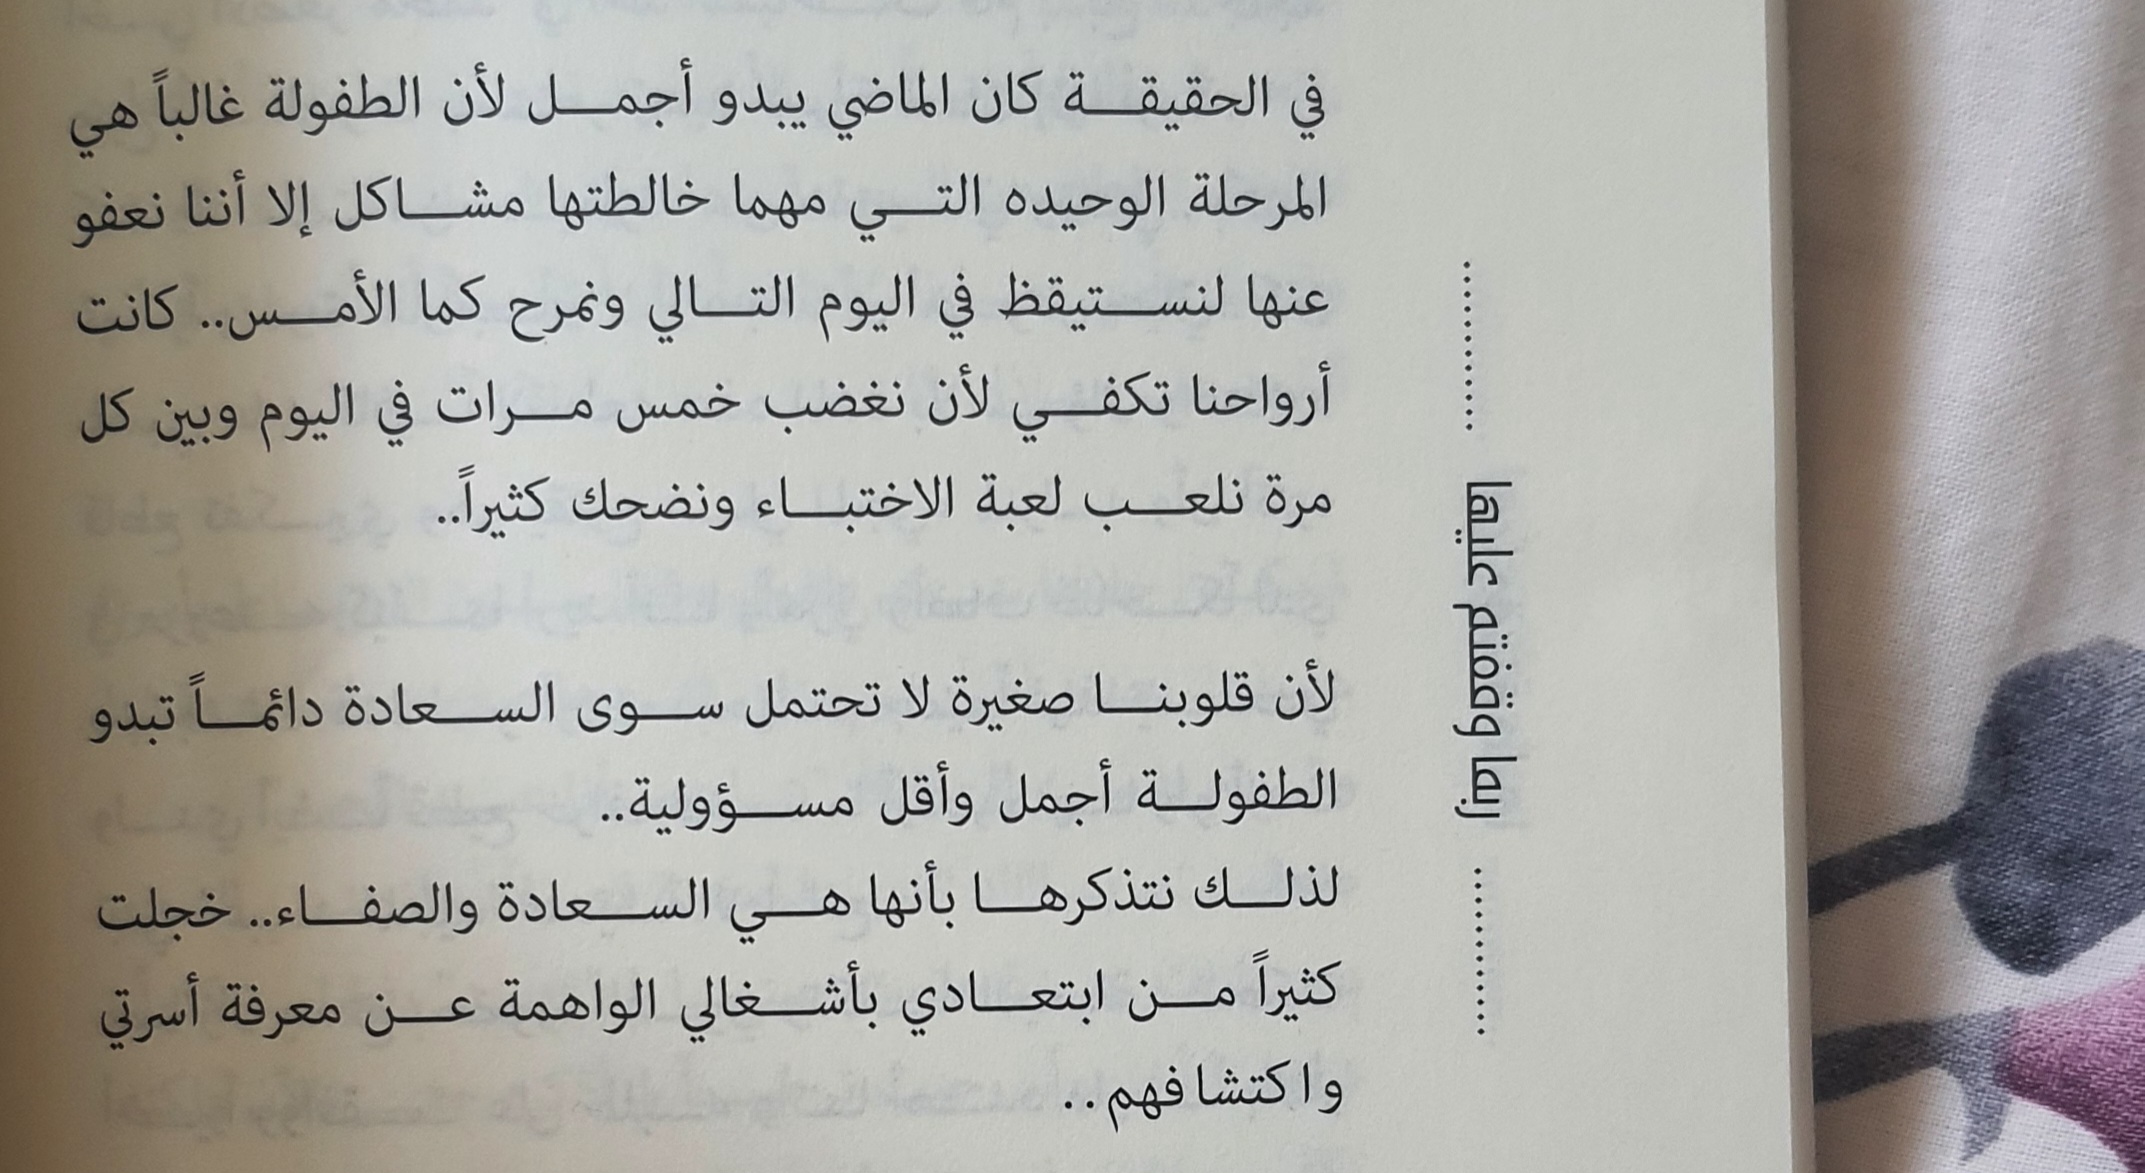 في الحقيقة كان الماضي يبدو أجمل لأن الطفولة غالباً هي
المرحلة الوحيده التي مهما خالطتها مشاكل إلا أننا نعفو
عنها لنستيقظ في اليوم التالي ونمرح كما الأمس.. كانت
أرواحنا تكفي لأن نغضب خمس مرات في اليوم وبين كل
مرة نلعب لعبة الاختباء ونضحك كثيراً..
لأن قلوبنا صغيرة لا تحتمل سوى السعادة دائماً تبدو
الطفولة أجمل وأقل مسؤولية..
لذلك نتذكرها بأنها هي السعادة والصفاء.. خجلت
كثيراً من ابتعادي بأشغالي الواهمة عن معرفة أسرتي
واكتشافهم..
ربما وقفتم عليها